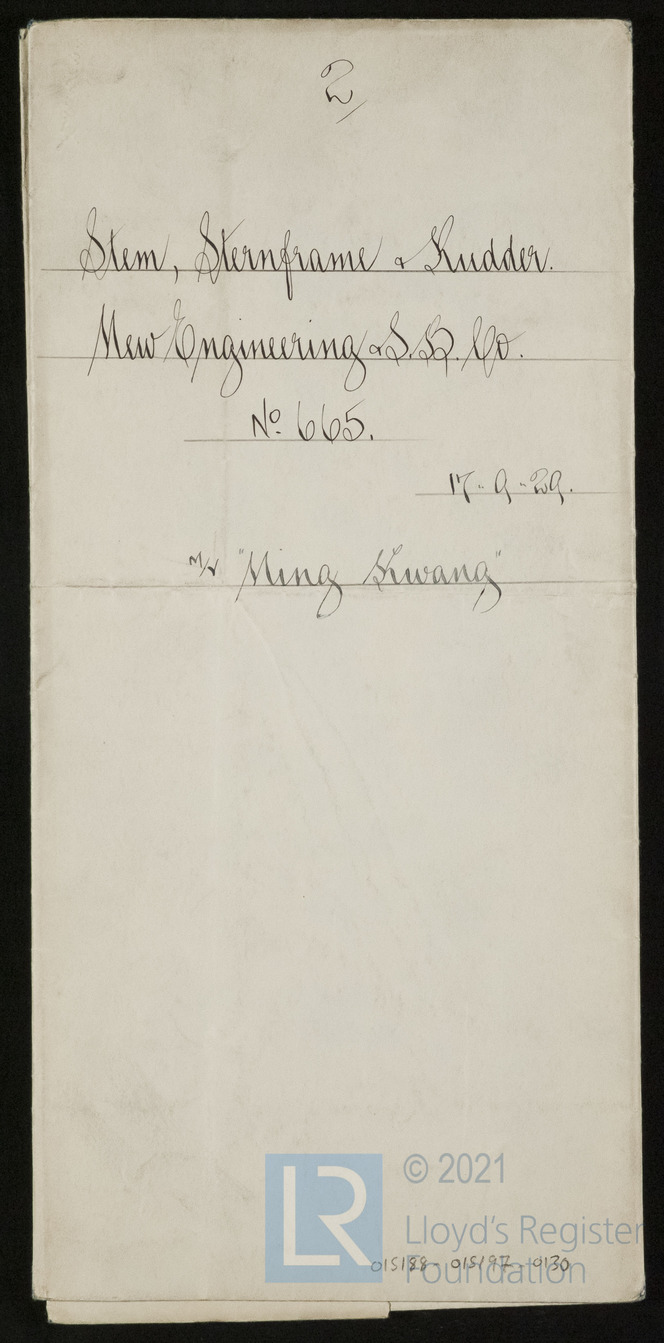 2
Stem, Sternframe & Rudder.
New Engineering & S.B. Co.
No. 665.
17-9-29.
M/V "Ning Kwang"
LR
© 2021
Lloyd's Register
Foundation
015188-015197-0130